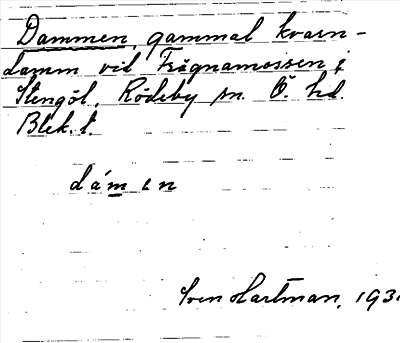 Dammen, gammal kvarn-
damm vid Frägnamossen i
Stengöl, Rödeby sn. Ö. hd.
Blek. l.
dámɩn
Sven Hartman, 193